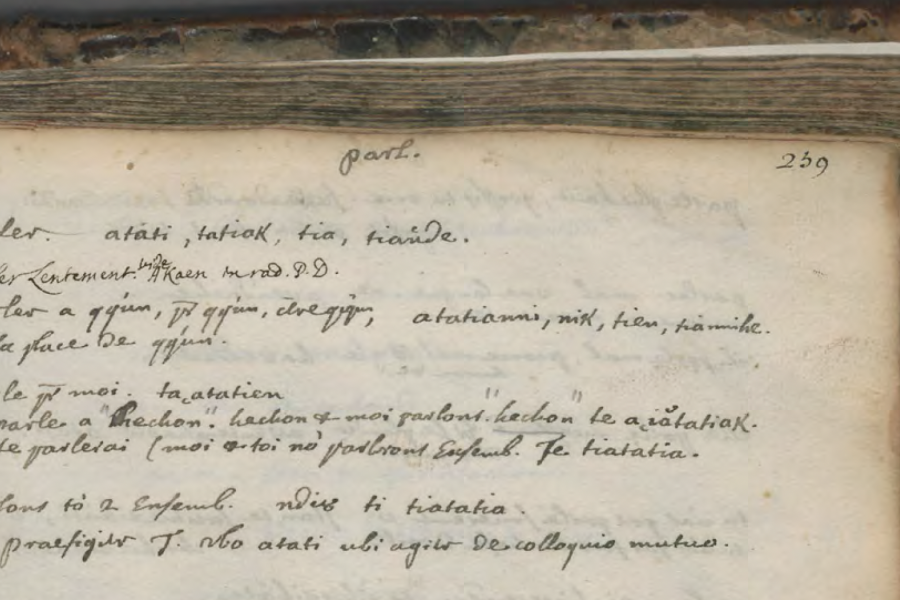 parl. 239
ler. atati, tatiak, tia, tiaȣde.
er Lentement. vide Akaen in rad. P.D.
ler a qq'un, pr qq'un, atatianni, nik, tien, tiannihe.
la place De qq'un.
le pr moi. ta,atatien
parle a "hechon". hechon & moi parlons "hechon" te a,iatatiak.
te parlerai (moi & toi nô parlerons Ensemb. Te tiatatia.
lons tô 2 Ensemb. ti tiatatia.
praefigitr T. vbo atati ubi agitr De colloquio mutuo.